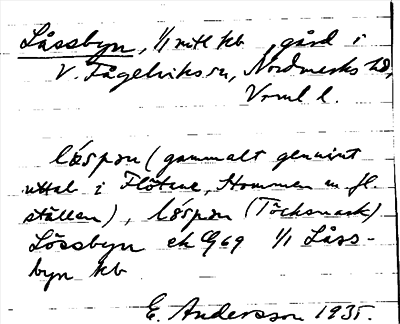 Låssbyn, 1/1 mtl kb, gård i
V. Fågelviks sn, Nordmarks hd,
Vrml l.
låspɔn (gammalt genuint
uttal i Flötene, Hommen m. fl.
ställen), låspɔn (Töcksmark)
Lössbyn ek G 69 1/1 Låss-
byn kb
E. Andersson 1935.